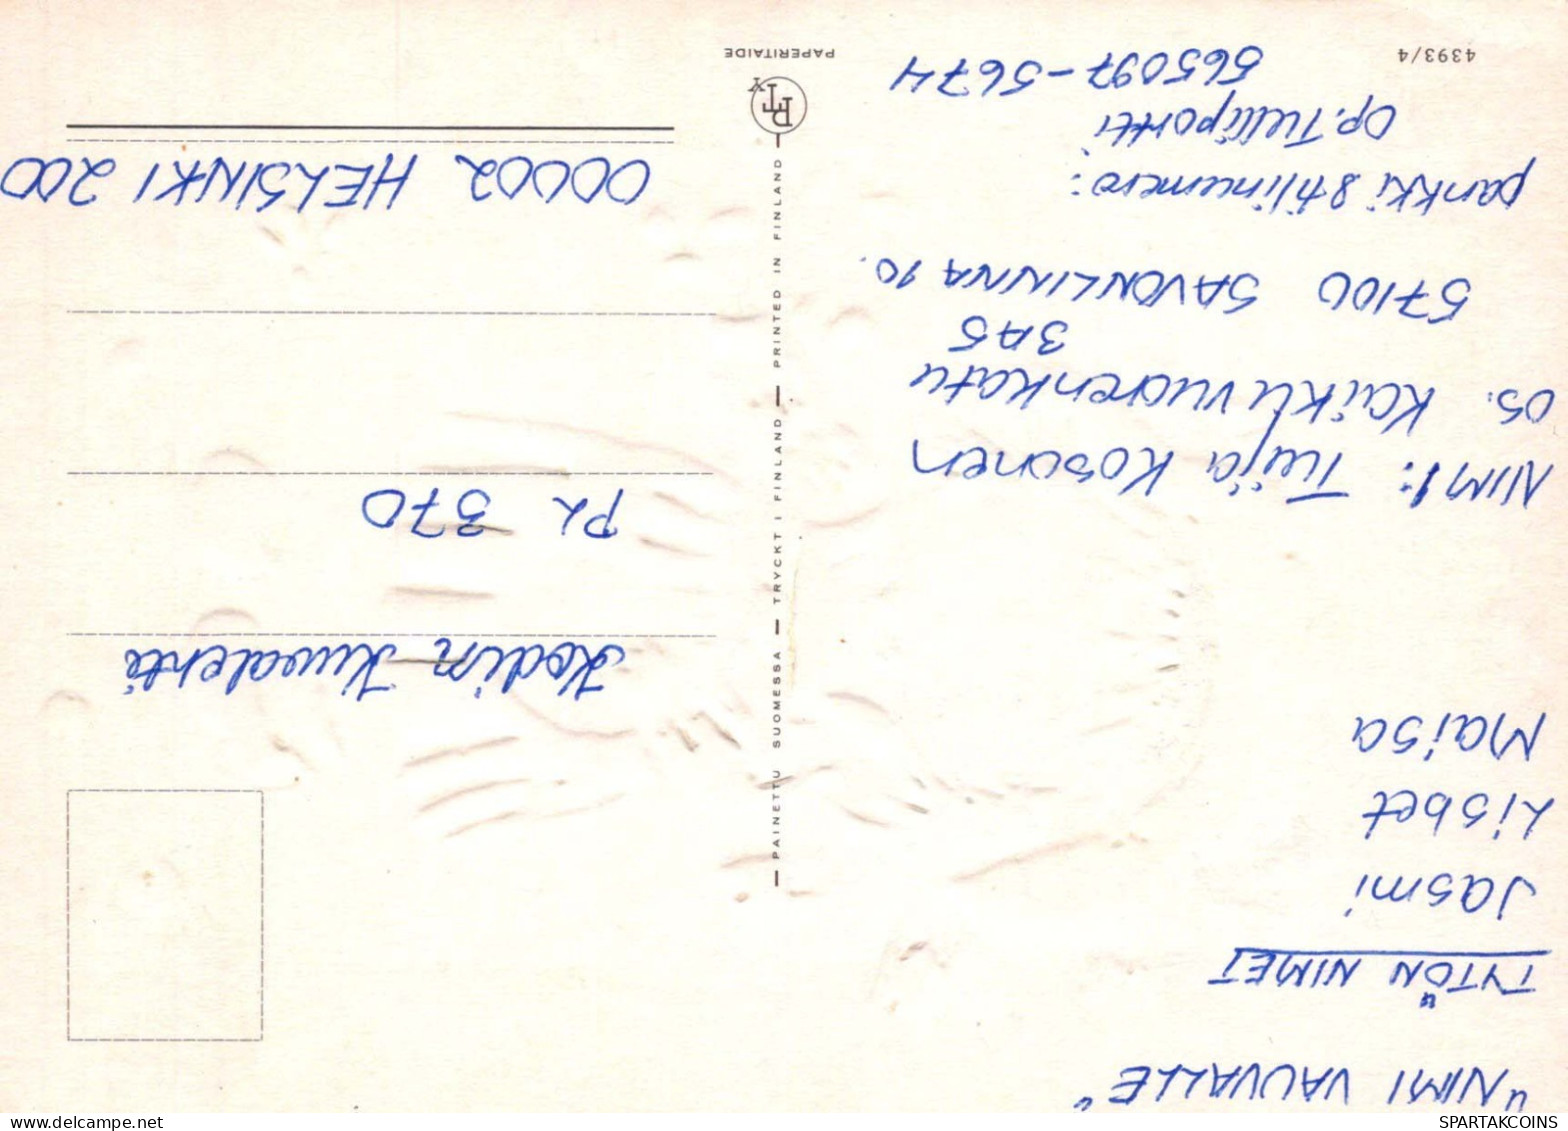 "NIMI VAUVALLE"
TYTÖN NIMET
Jasmi
Lisbet
Maisa
NIMI: Tuija Kosonen
OS. Kaikuvuorenkatu
3A5
57100 SAVONLINNA 10.
pankki & tilinumero:
OP. Tulliportti
565097-5674
4393/4
Kodin Kuvalehti
PL 370
00002 HELSINKI 200
PAINETTU SUOMESSA — TRYCKT I FINLAND — PRINTED IN FINLAND
PAPERITAIDE
SPARTAKCOINS